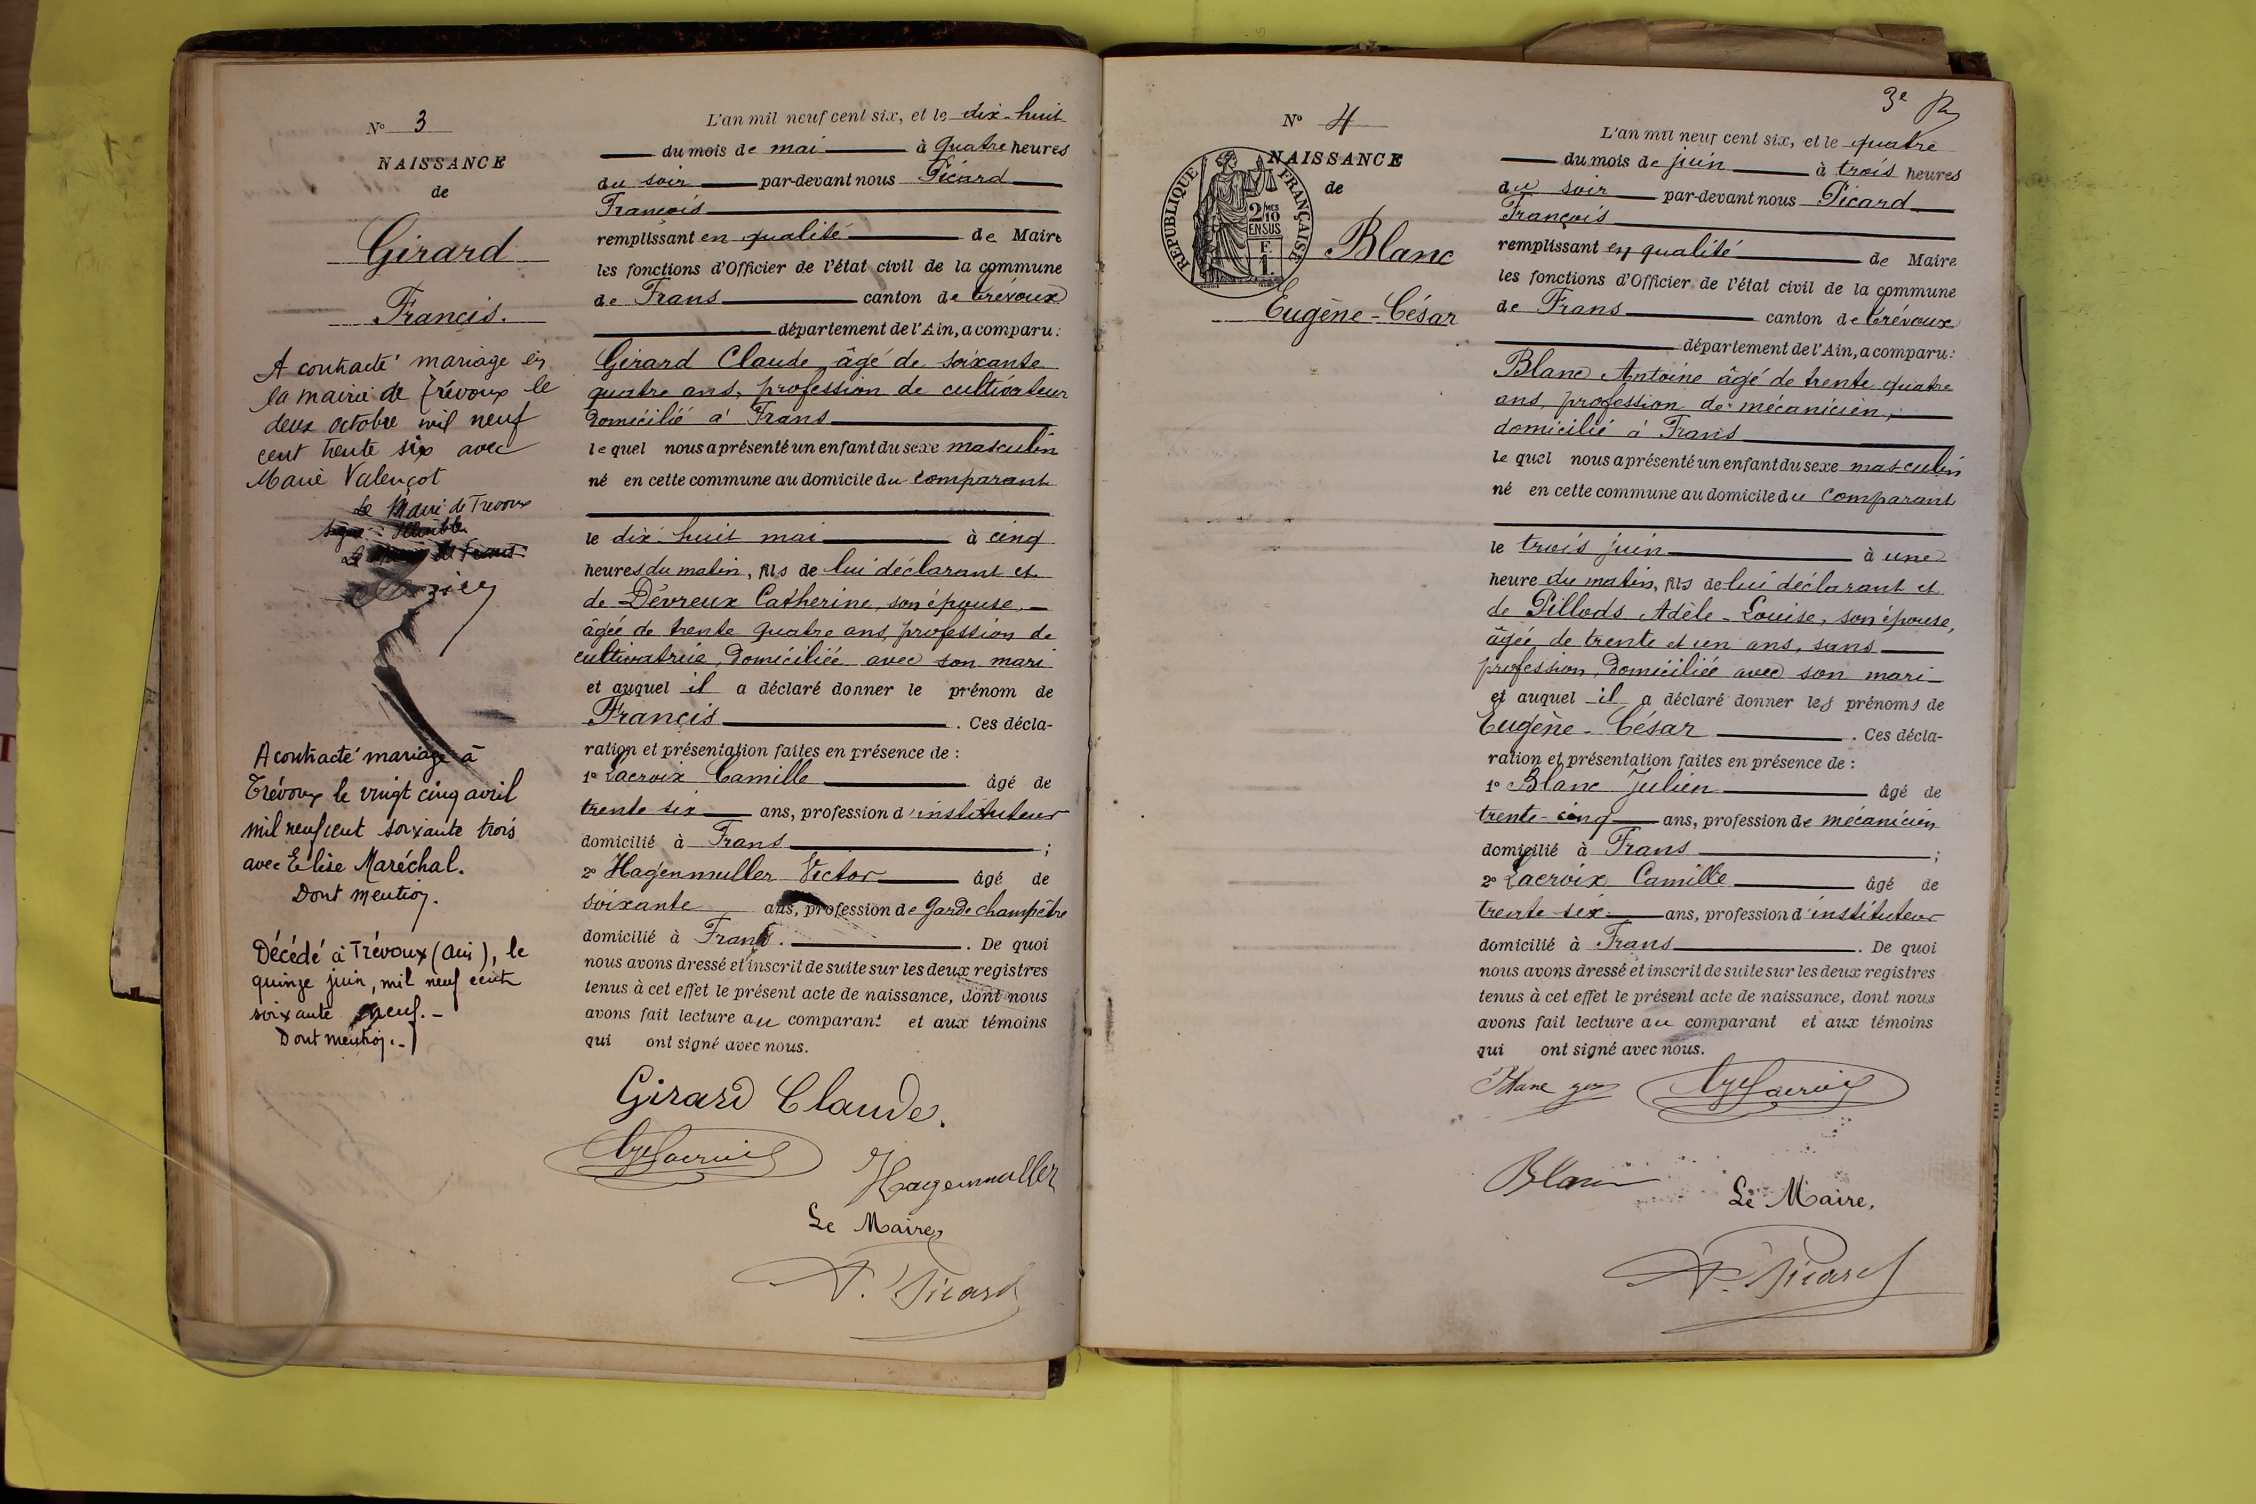 N° 3
NAISSANCE
de
Girard
Francis.
A contracté mariage en
la mairie de Trévoux le
deux octobre mil neuf
cent trente six avec
Marie Valençot
Le Maire de Trévoux
A contracté mariage à
Trévoux le vingt cinq avril
mil neuf cent soixante trois
avec Elise Maréchal.
Dont mention.
Décédé à Trévoux (Ain), le
quinze juin, mil neuf cent
soixante neuf. -
Dont mention. -
L'an mil neuf cent six, et le dix-huit
du mois de mai à quatre heures
du soir par-devant nous Picard
François
remplissant en qualité de Maire
les fonctions d'Officier de l'état civil de la commune
de Frans canton de Trévoux
département de l'Ain, a comparu:
Girard Claude âgé de soixante
quatre ans, profession de cultivateur
domicilié à Frans
le quel nous a présenté un enfant du sexe masculin
né en cette commune au domicile du comparant
le dix-huit mai à cinq
heures du matin, fils de lui déclarant et
de Dévreux Catherine, son épouse,
âgée de trente quatre ans, profession de
cultivatrice, domiciliée avec son mari
et auquel il a déclaré donner le prénom de
Francis. Ces décla-
ration et présentation faites en présence de:
1° Lacroix Camille âgé de
trente six ans, profession d'instituteur
domicilié à Frans;
2° Hagenmuller Victor âgé de
soixante ans, profession de garde champêtre
domicilié à Frans. De quoi
nous avons dressé et inscrit de suite sur les deux registres
tenus à cet effet le présent acte de naissance, dont nous
avons fait lecture au comparant et aux témoins
qui ont signé avec nous.
Girard Claude.
Lacroix
Hagenmuller
Le Maire,
F. Picard
3e
N° 4
NAISSANCE
de
RÉPUBLIQUE FRANÇAISE
2/10 MES
EN SUS
F.
1.
Blanc
Eugène-César
L'an mil neuf cent six, et le quatre
du mois de juin à trois heures
du soir par-devant nous Picard
François
remplissant en qualité de Maire
les fonctions d'Officier de l'état civil de la commune
de Frans canton de Trévoux
département de l'Ain, a comparu:
Blanc Antoine âgé de trente quatre
ans, profession de mécanicien,
domicilié à Frans
le quel nous a présenté un enfant du sexe masculin
né en cette commune au domicile du comparant
le trois juin à une
heure du matin, fils de lui déclarant et
de Pillods Adèle-Louise, son épouse,
âgée de trente et un ans, sans
profession, domiciliée avec son mari
et auquel il a déclaré donner les prénoms de
Eugène-César. Ces décla-
ration et présentation faites en présence de:
1° Blanc Julien âgé de
trente-cinq ans, profession de mécanicien
domicilié à Frans;
2° Lacroix Camille âgé de
trente six ans, profession d'instituteur
domicilié à Frans. De quoi
nous avons dressé et inscrit de suite sur les deux registres
tenus à cet effet le présent acte de naissance, dont nous
avons fait lecture au comparant et aux témoins
qui ont signé avec nous.
Blanc Lacroix
Blanc
Le Maire,
F. Picard